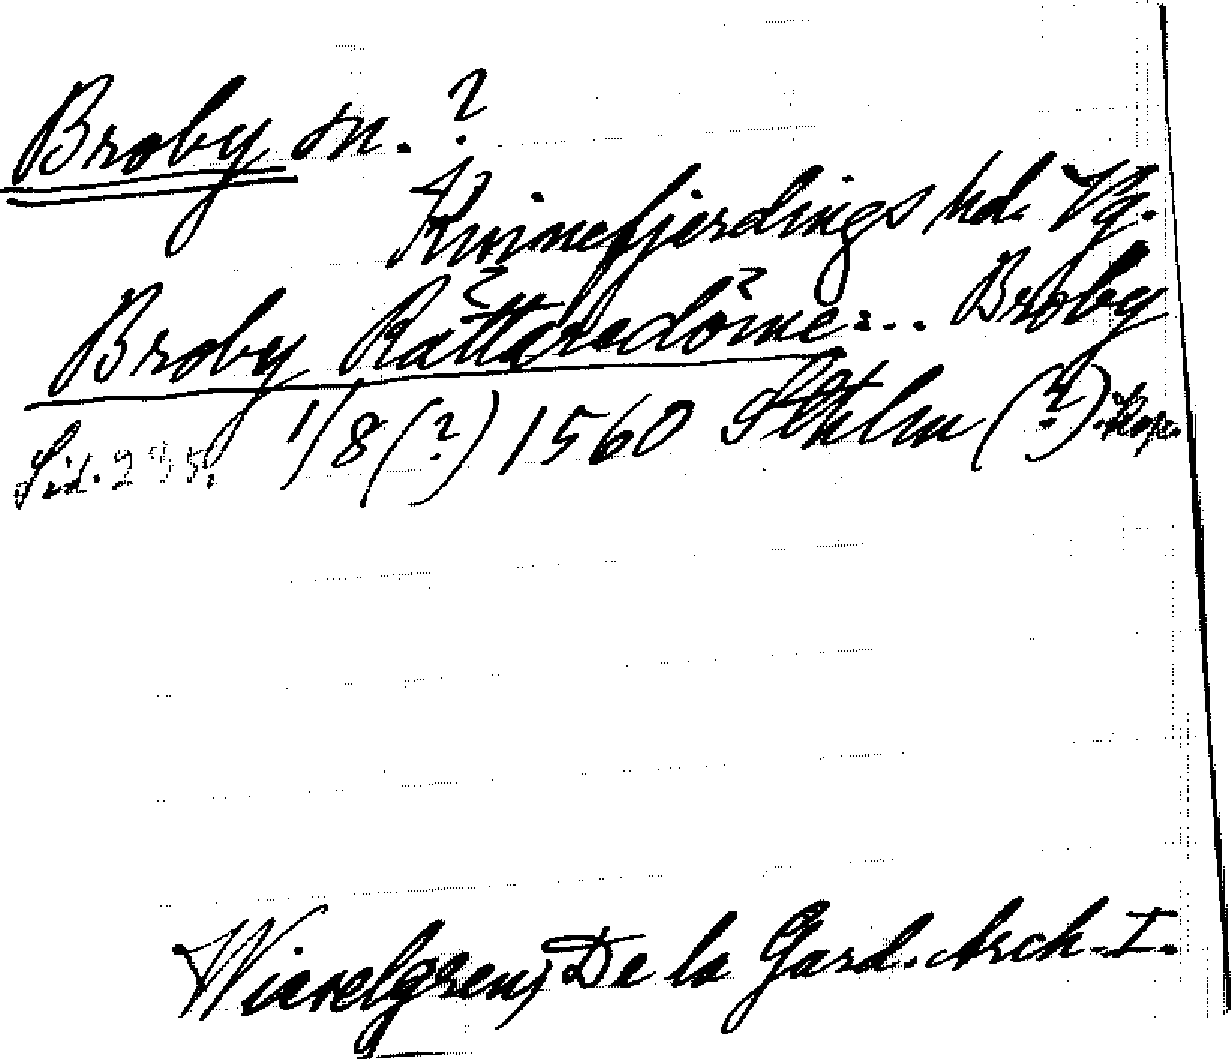 Broby sn. ?
Kinnefjerdings hd. Vg.
Broby Rättaredöme... Broby
1/8 (?) 1560 Sthlm (?). Kop.
Sid. 235.
Wieselgren, De la Gard. Arch. I.